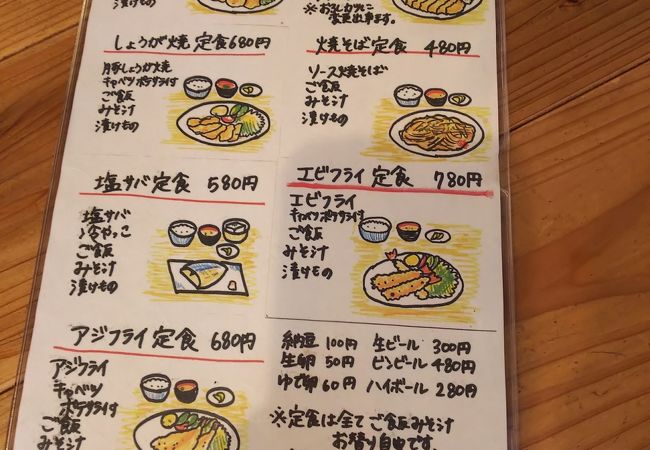 漬けもの
※おろしカツに
変更出来ます。
しょうが焼定食680円
豚しょうが焼
キャベツポテサラ付
ご飯
みそ汁
漬けもの
焼そば定食 480円
ソース焼そば
ご飯
みそ汁
漬けもの
塩サバ定食 580円
塩サバ
冷やっこ
ご飯
みそ汁
漬けもの
エビフライ定食 780円
エビフライ
キャベツポテサラ付
ご飯
みそ汁
漬けもの
アジフライ定食 680円
アジフライ
キャベツ
ポテサラ付
ご飯
みそ汁
納豆 100円
生卵 50円
ゆで卵 60円
生ビール 300円
ビンビール 480円
ハイボール 280円
※定食は全てご飯みそ汁
お替り自由です。